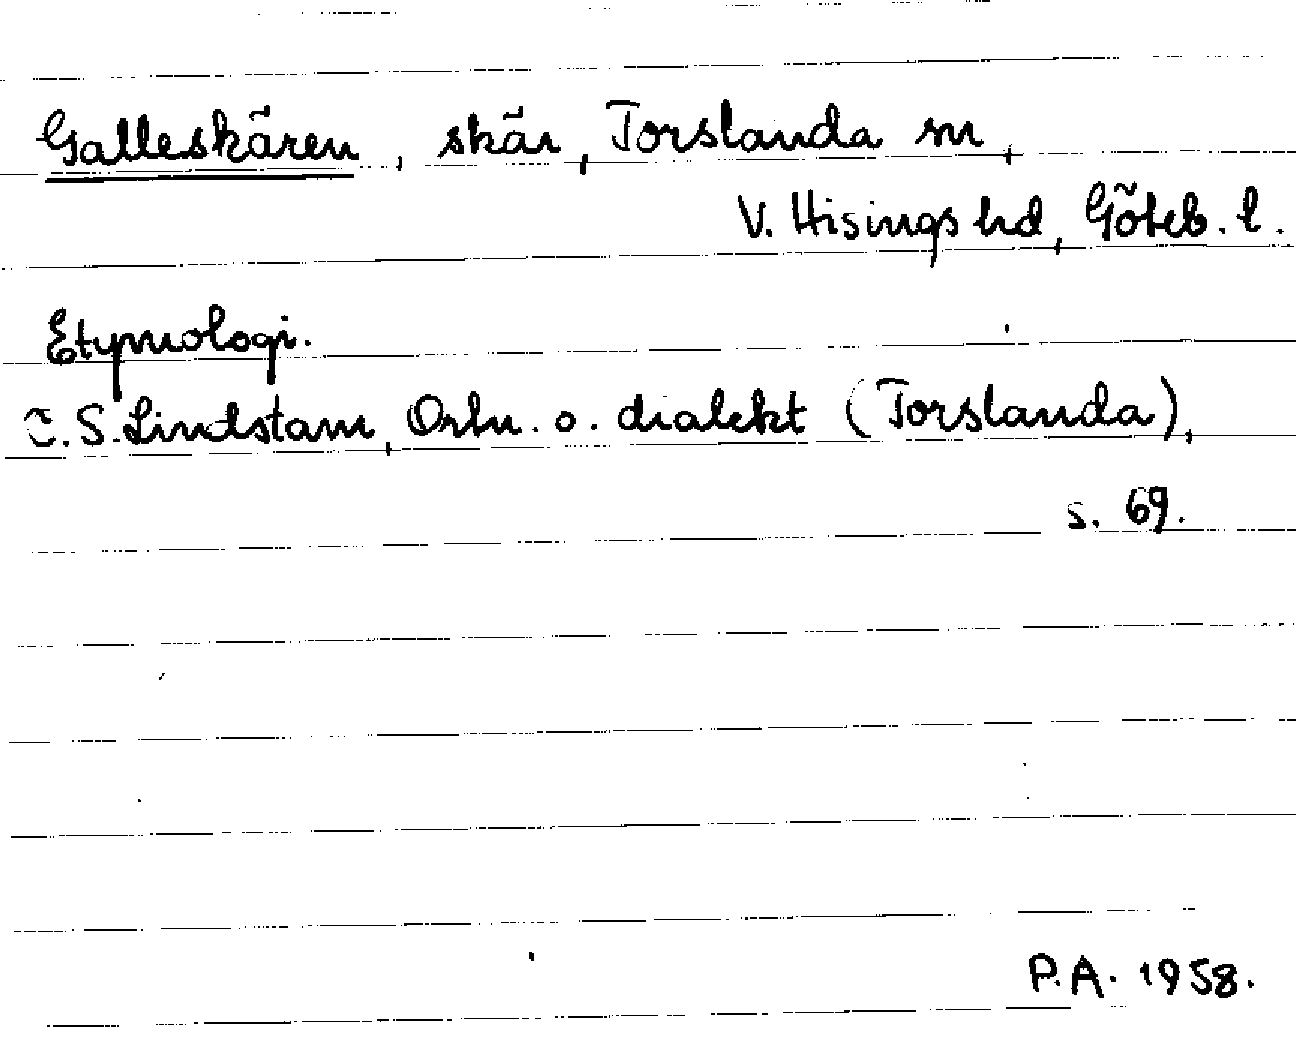 Galleskären, skär, Torslanda sn,
V. Hisings hd, Göteb. l.
Etymologi.
C. S. Lindstam, Ortn. o. dialekt (Torslanda),
s. 69.
P.A. 1958.